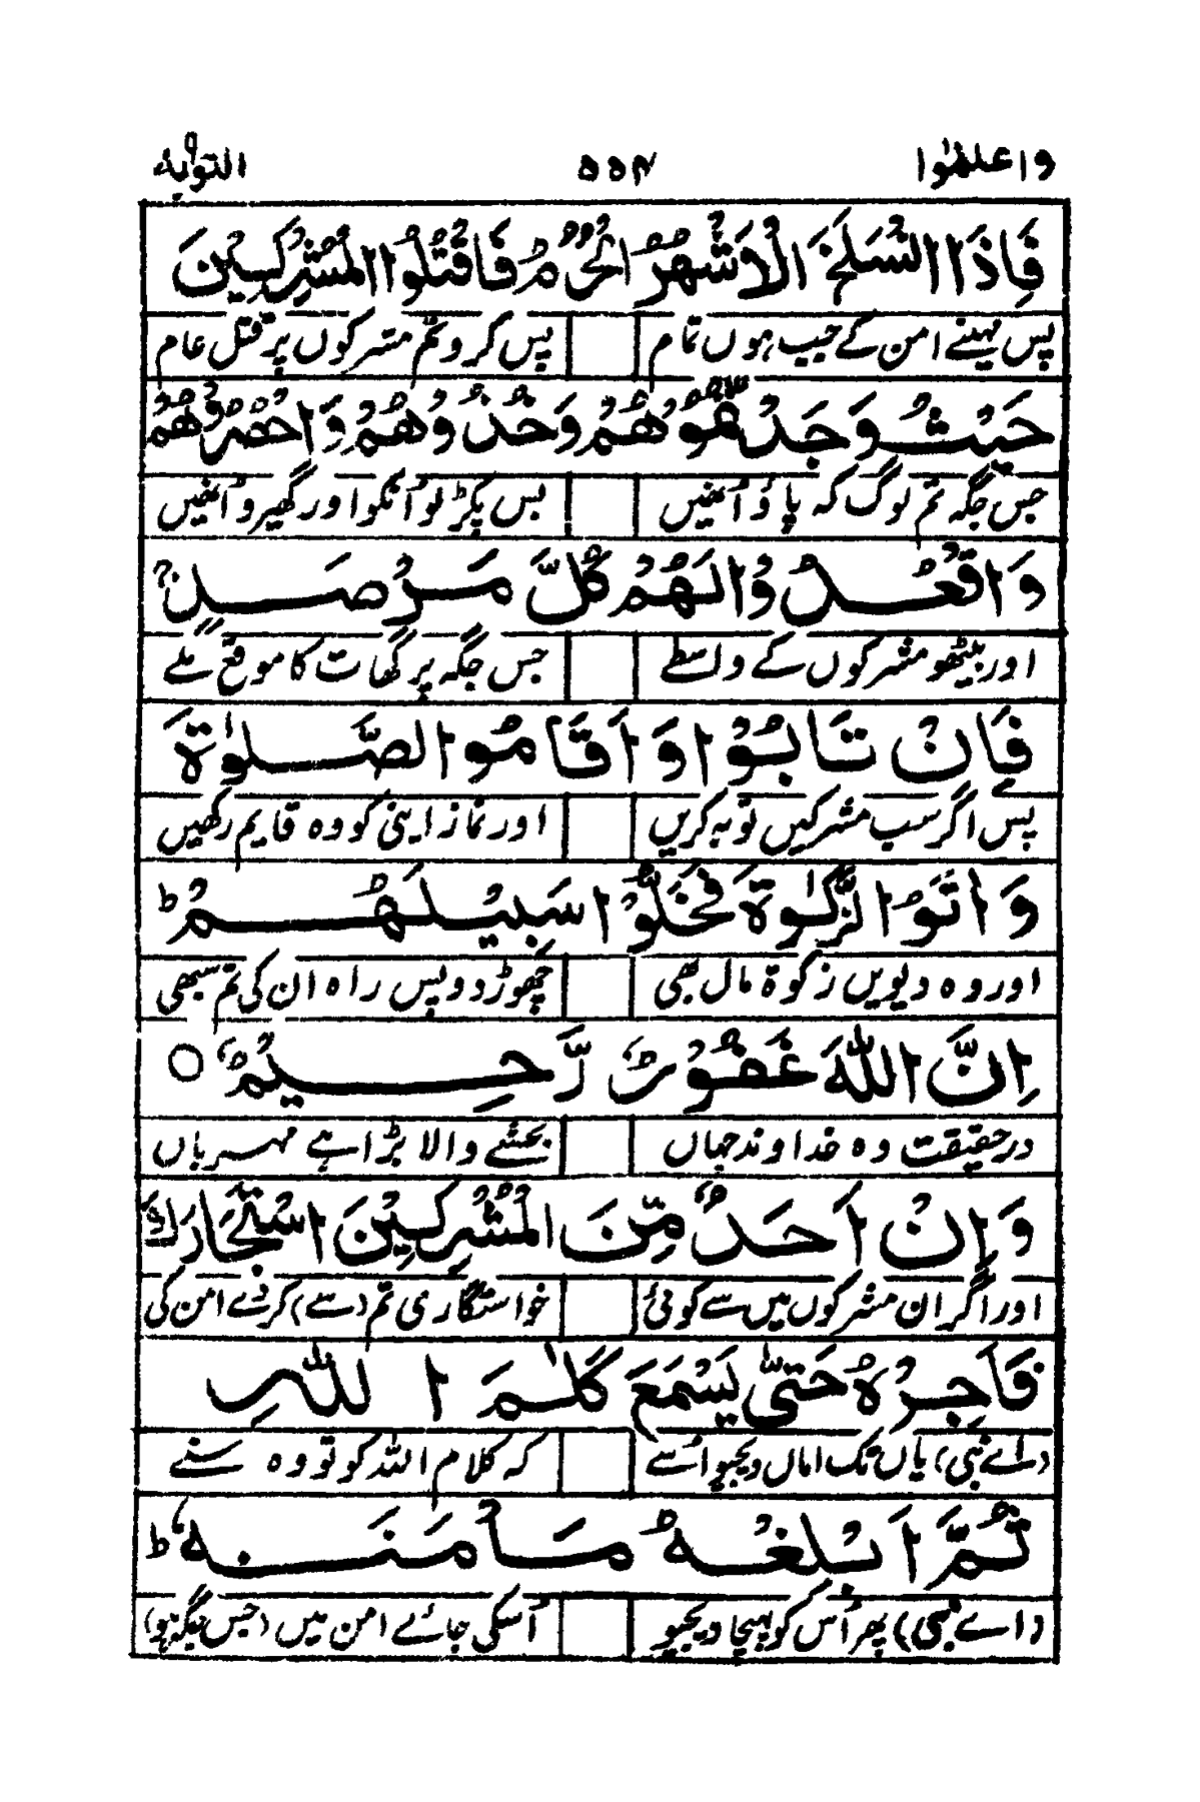 واعلموا ۵۵۴ التوبه ۹
فَاِذَا انْسَلَخَ الْاَشْهُرُ الْحُرُمُ فَاقْتُلُوا الْمُشْرِكِيْنَ
پس مہینے امن کے جب ہوں تمام پس کرو تم مشرکوں پر قتل عام
حَيْثُ وَجَدْتُّمُوْهُمْ وَخُذُوْهُمْ وَاحْصُرُوْهُمْ
جس جگہ تم لوگ کہ پاؤ اُنھیں بس پکڑ لو اُنکو اور گھیرو اُنھیں
وَاقْعُدُوْا لَهُمْ كُلَّ مَرْصَدٍ ۚ
اور بیٹھو مشرکوں کے واسطے جس جگہ پر گھات کا موقع ملے
فَاِنْ تَابُوْا وَاَقَامُوا الصَّلٰوةَ
پس اگر سب مشرکیں توبہ کریں اور نماز اپنی کو وہ قایم رکھیں
وَاٰتَوُا الزَّكٰوةَ فَخَلُّوْا سَبِيْلَهُمْ ؕ
اور وہ دیویں زکوة مال بھی چھوڑ دو پس راہ ان کی تم سبھی
اِنَّ اللّٰهَ غَفُوْرٌ رَّحِيْمٌ ○
درحقیقت وہ خداوند جہاں بخشنے والا بڑا ہے مہرباں
وَاِنْ اَحَدٌ مِّنَ الْمُشْرِكِيْنَ اسْتَجَارَكَ
اور اگر ان مشرکوں میں سے کوئی خواستگاری تم (سے) کرے امن کی
فَاَجِرْهُ حَتّٰى يَسْمَعَ كَلٰمَ اللّٰهِ
(اے نبی) یاں تک اماں دیجیو اُسے کہ کلام اللہ کو تو وہ سنے
ثُمَّ اَبْلِغْهُ مَاْمَنَهٗ ؕ
(اے نبی) پھر اُس کو پہنچا دیجیو اُسکی جائے امن میں (جس جگہ ہو)